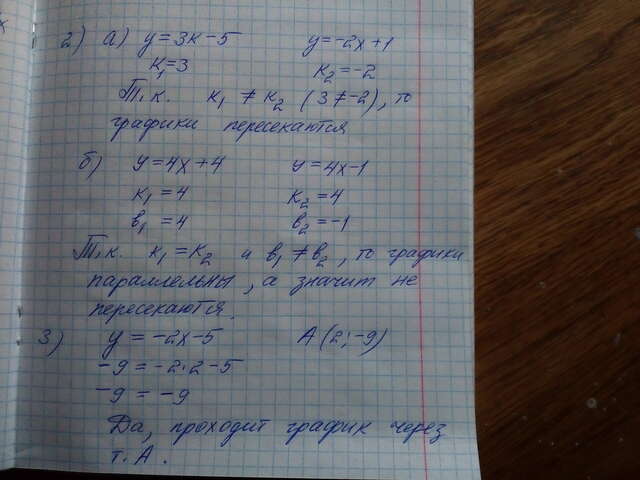 2) а) y = 3x - 5 y = -2x + 1
к₁ = 3 к₂ = -2
Т.к. к₁ ≠ к₂ (3 ≠ -2), то
графики пересекаются
б) y = 4x + 4 y = 4x - 1
к₁ = 4 к₂ = 4
в₁ = 4 в₂ = -1
Т.к. к₁ = к₂ и в₁ ≠ в₂, то графики
параллельны, а значит не
пересекаются.
3) y = -2x - 5 А (2; -9)
-9 = -2·2 - 5
-9 = -9
Да, проходит график через
т. А.